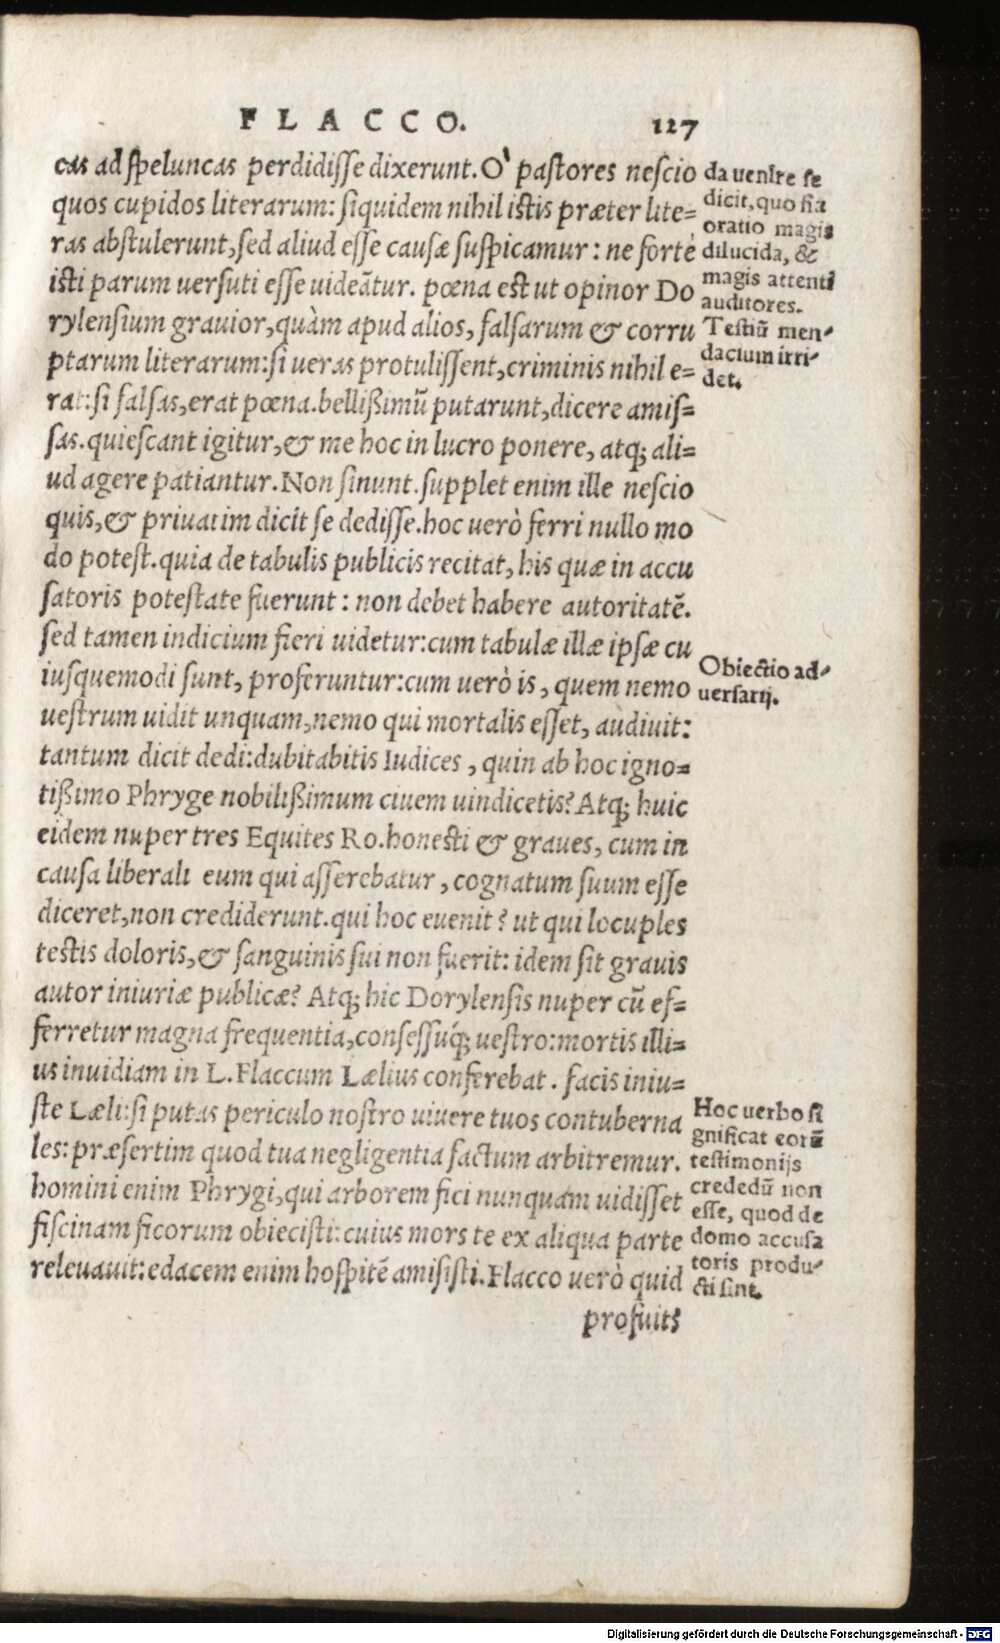 FLACCO. 127
cas ad speluncas perdidisse dixerunt. O' pastores nescio
quos cupidos literarum: siquidem nihil istis præter lite=
ras abstulerunt, sed aliud esse causæ suspicamur: ne forte
isti parum uersuti esse uideātur. pœna est ut opinor Do
rylensium grauior, quàm apud alios, falsarum & corru
ptarum literarum: si ueras protulissent, criminis nihil e=
rat: si falsas, erat pœna. bellißimū putarunt, dicere amis=
sas. quiescant igitur, & me hoc in lucro ponere, atq; ali=
ud agere patiantur. Non sinunt. supplet enim ille nescio
quis, & priuatim dicit se dedisse. hoc uerò ferri nullo mo
do potest. quia de tabulis publicis recitat, his quæ in accu
satoris potestate fuerunt: non debet habere autoritatē.
sed tamen indicium fieri uidetur: cum tabulæ illæ ipsæ cu
iusquemodi sunt, proferuntur: cum uerò is, quem nemo
uestrum uidit unquam, nemo qui mortalis esset, audiuit:
tantum dicit dedi: dubitabitis Iudices, quin ab hoc igno=
tißimo Phryge nobilißimum ciuem uindicetis? Atq; huic
eidem nuper tres Equites Ro. honesti & graues, cum in
causa liberali eum qui asserebatur, cognatum suum esse
diceret, non crediderunt. qui hoc euenit? ut qui locuples
testis doloris, & sanguinis sui non fuerit: idem sit grauis
autor iniuriæ publicæ? Atq; hic Dorylensis nuper cū ef=
ferretur magna frequentia, consessúq; uestro: mortis illi=
us inuidiam in L. Flaccum Lælius conferebat. facis iniu=
ste Læli: si putas periculo nostro uiuere tuos contuberna
les: præsertim quod tua negligentia factum arbitremur.
homini enim Phrygi, qui arborem fici nunquam uidisset
fiscinam ficorum obiecisti: cuius mors te ex aliqua parte
releuauit: edacem enim hospitē amisisti. Flacco uerò quid
profuit?
da uenire se
dicit, quo fia
oratio magis
dilucida, &
magis attenti
auditores.
Testiū men-
dacium irri-
det.
Obiectio ad-
uersarij.
Hoc uerbo si
gnificat eorū
testimonijs
credēdū non
esse, quod de
domo accusa
toris produ-
cti sint.
Digitalisierung gefördert durch die Deutsche Forschungsgemeinschaft - DFG